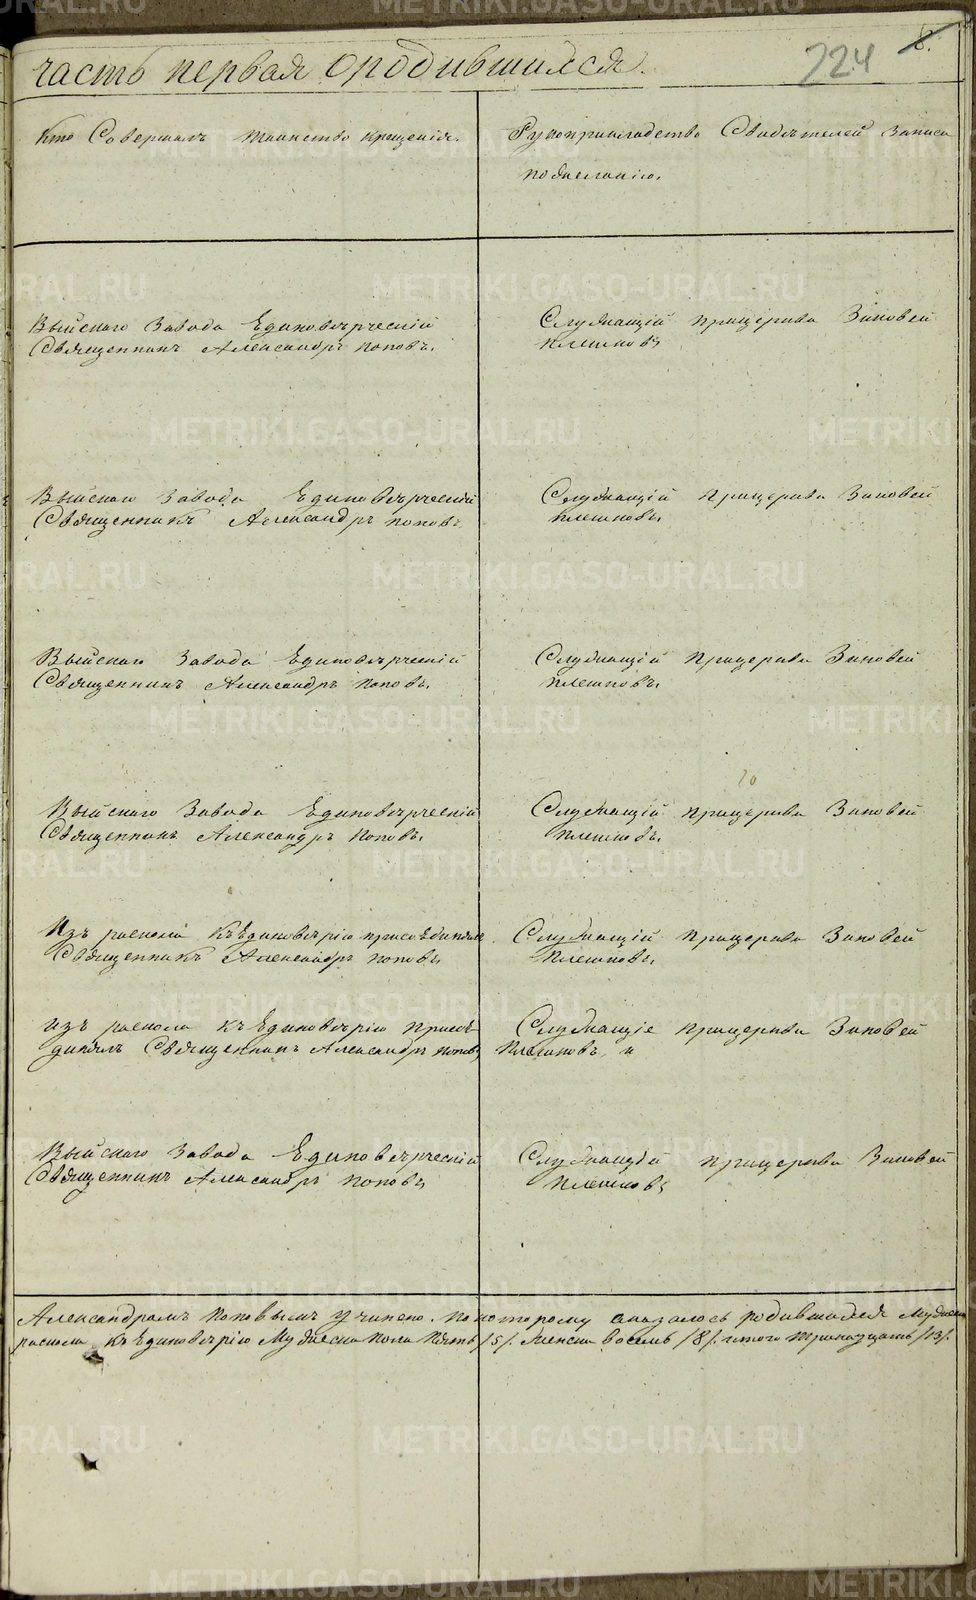 часть первая о родившихся.
224
8.
Кто Совершалъ таинство крещенія.
Рукоприкладство Свидѣтелей записи
по желанію.
Выйскаго Завода Единовѣрческій
Священникъ Александръ Поповъ.
Служащій прицеркви Зиновей
Плешковъ
Выйскаго Завода Единовѣрческій
Священникъ Александръ Поповъ.
Служащій прицеркви Зиновей
Плешковъ
Выйскаго Завода Единовѣрческій
Священникъ Александръ Поповъ.
Служащій прицеркви Зиновей
Плешковъ.
Выйскаго Завода Единовѣрческій
Священникъ Александръ Поповъ.
Служащій прицеркви Зиновей
Плешковъ.
Изъ раскола къ Единовѣрію присоединилъ
Священникъ Александръ Поповъ
Служащій прицеркви Зиновей
Плешковъ.
изъ раскола къ Единовѣрію присое
динилъ Священникъ Александръ Поповъ
Служащіе прицеркви Зиновей
Плешковъ и
Выйскаго Завода Единовѣрческій
Священникъ Александръ Поповъ
Служащій прицеркви Зиновей
Плешковъ
Александромъ Поповымъ учинено. по которому оказалось родившихся Мужеска
раскола къ Единовѣрію Мужеска пола пять /5/. женска восемь /8/. итого тринадцать /13/.
METRIKI.GASO-URAL.RU